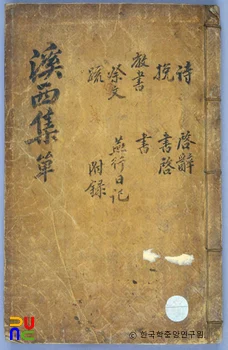 溪西集 單
詩 啓辭
挽 書啓
敎書 書
祭文 燕行日记
疏 附録
ⓒ 한국학중앙연구원